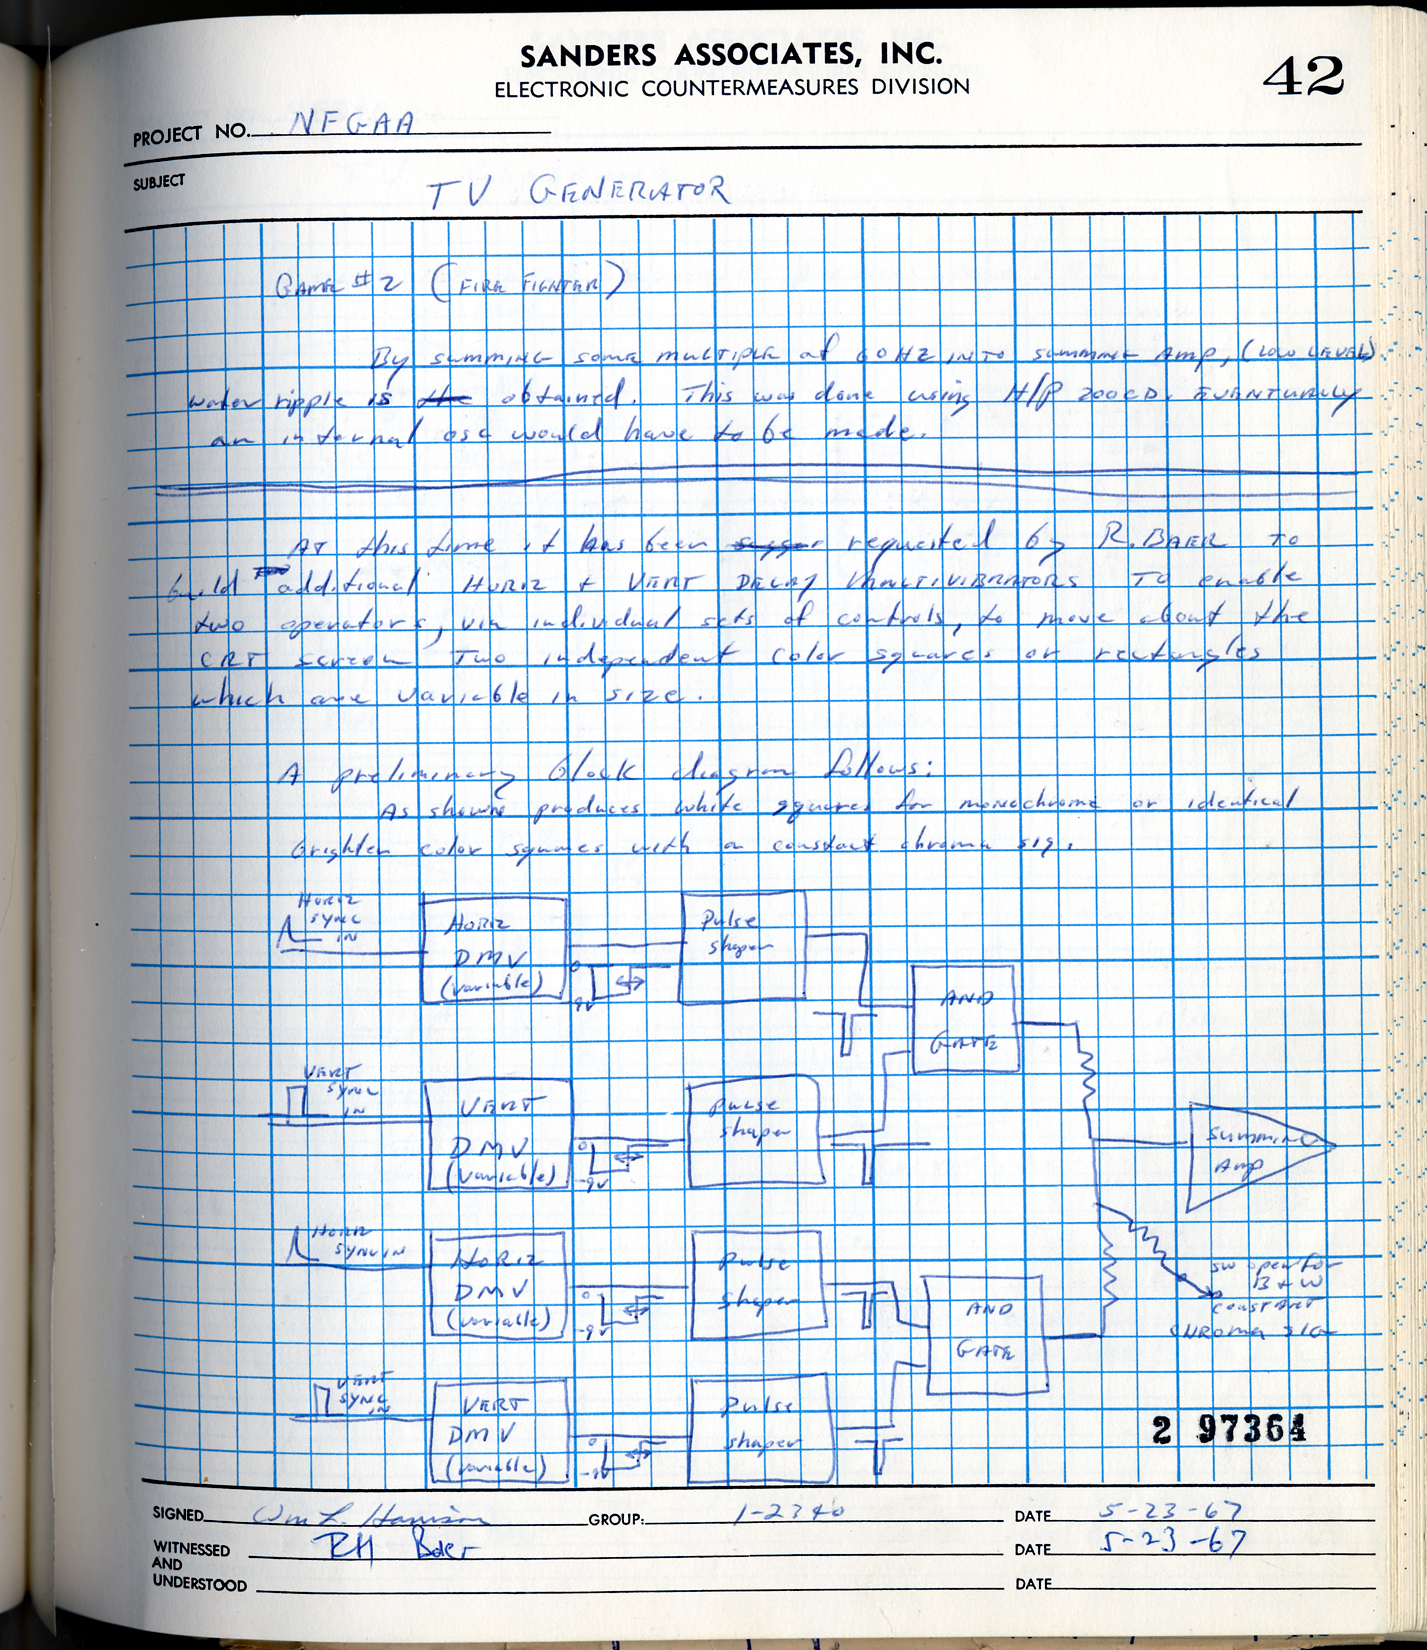 SANDERS ASSOCIATES, INC.
ELECTRONIC COUNTERMEASURES DIVISION
42
PROJECT NO. NFGAA
SUBJECT
TV GENERATOR
GAME #2 (FIRE FIGHTER)
By summing some multiple of 60HZ INTO summing Amp, (LOW LEVEL)
water ripple is the obtained. This was done using H/P 200CD. EVENTUALLY
an internal osc would have to be made.
At this time it has been requested by R. BAER TO
build additional HORIZ + VERT DELAY MULTIVIBRATORS TO enable
two operators, via individual sets of controls, to move about the
CRT screen Two independent color squares or rectangles
which are variable in size.
A preliminary block diagram follows:
As shown produces white squares for monochrome or identical
brighten color squares with a constant chroma sig.
HORIZ
SYNC
IN
HORIZ
DMV
(variable)
0
-9V
Pulse
shaper
AND
GATE
VERT
SYNC
IN
VERT
DMV
(variable)
0
-9V
Pulse
shaper
SUMMING
Amp
HORIZ
SYNC IN
HORIZ
DMV
(variable)
0
-9V
Pulse
shaper
AND
GATE
SW open for
B + W
CONSTANT
CHROMA SIG
VERT
SYNC
IN
VERT
DMV
(variable)
0
-9V
Pulse
shaper
2 97364
SIGNED Wm L. Harrison GROUP: 1-2340 DATE 5-23-67
WITNESSED RH Baer DATE 5-23-67
AND
UNDERSTOOD DATE